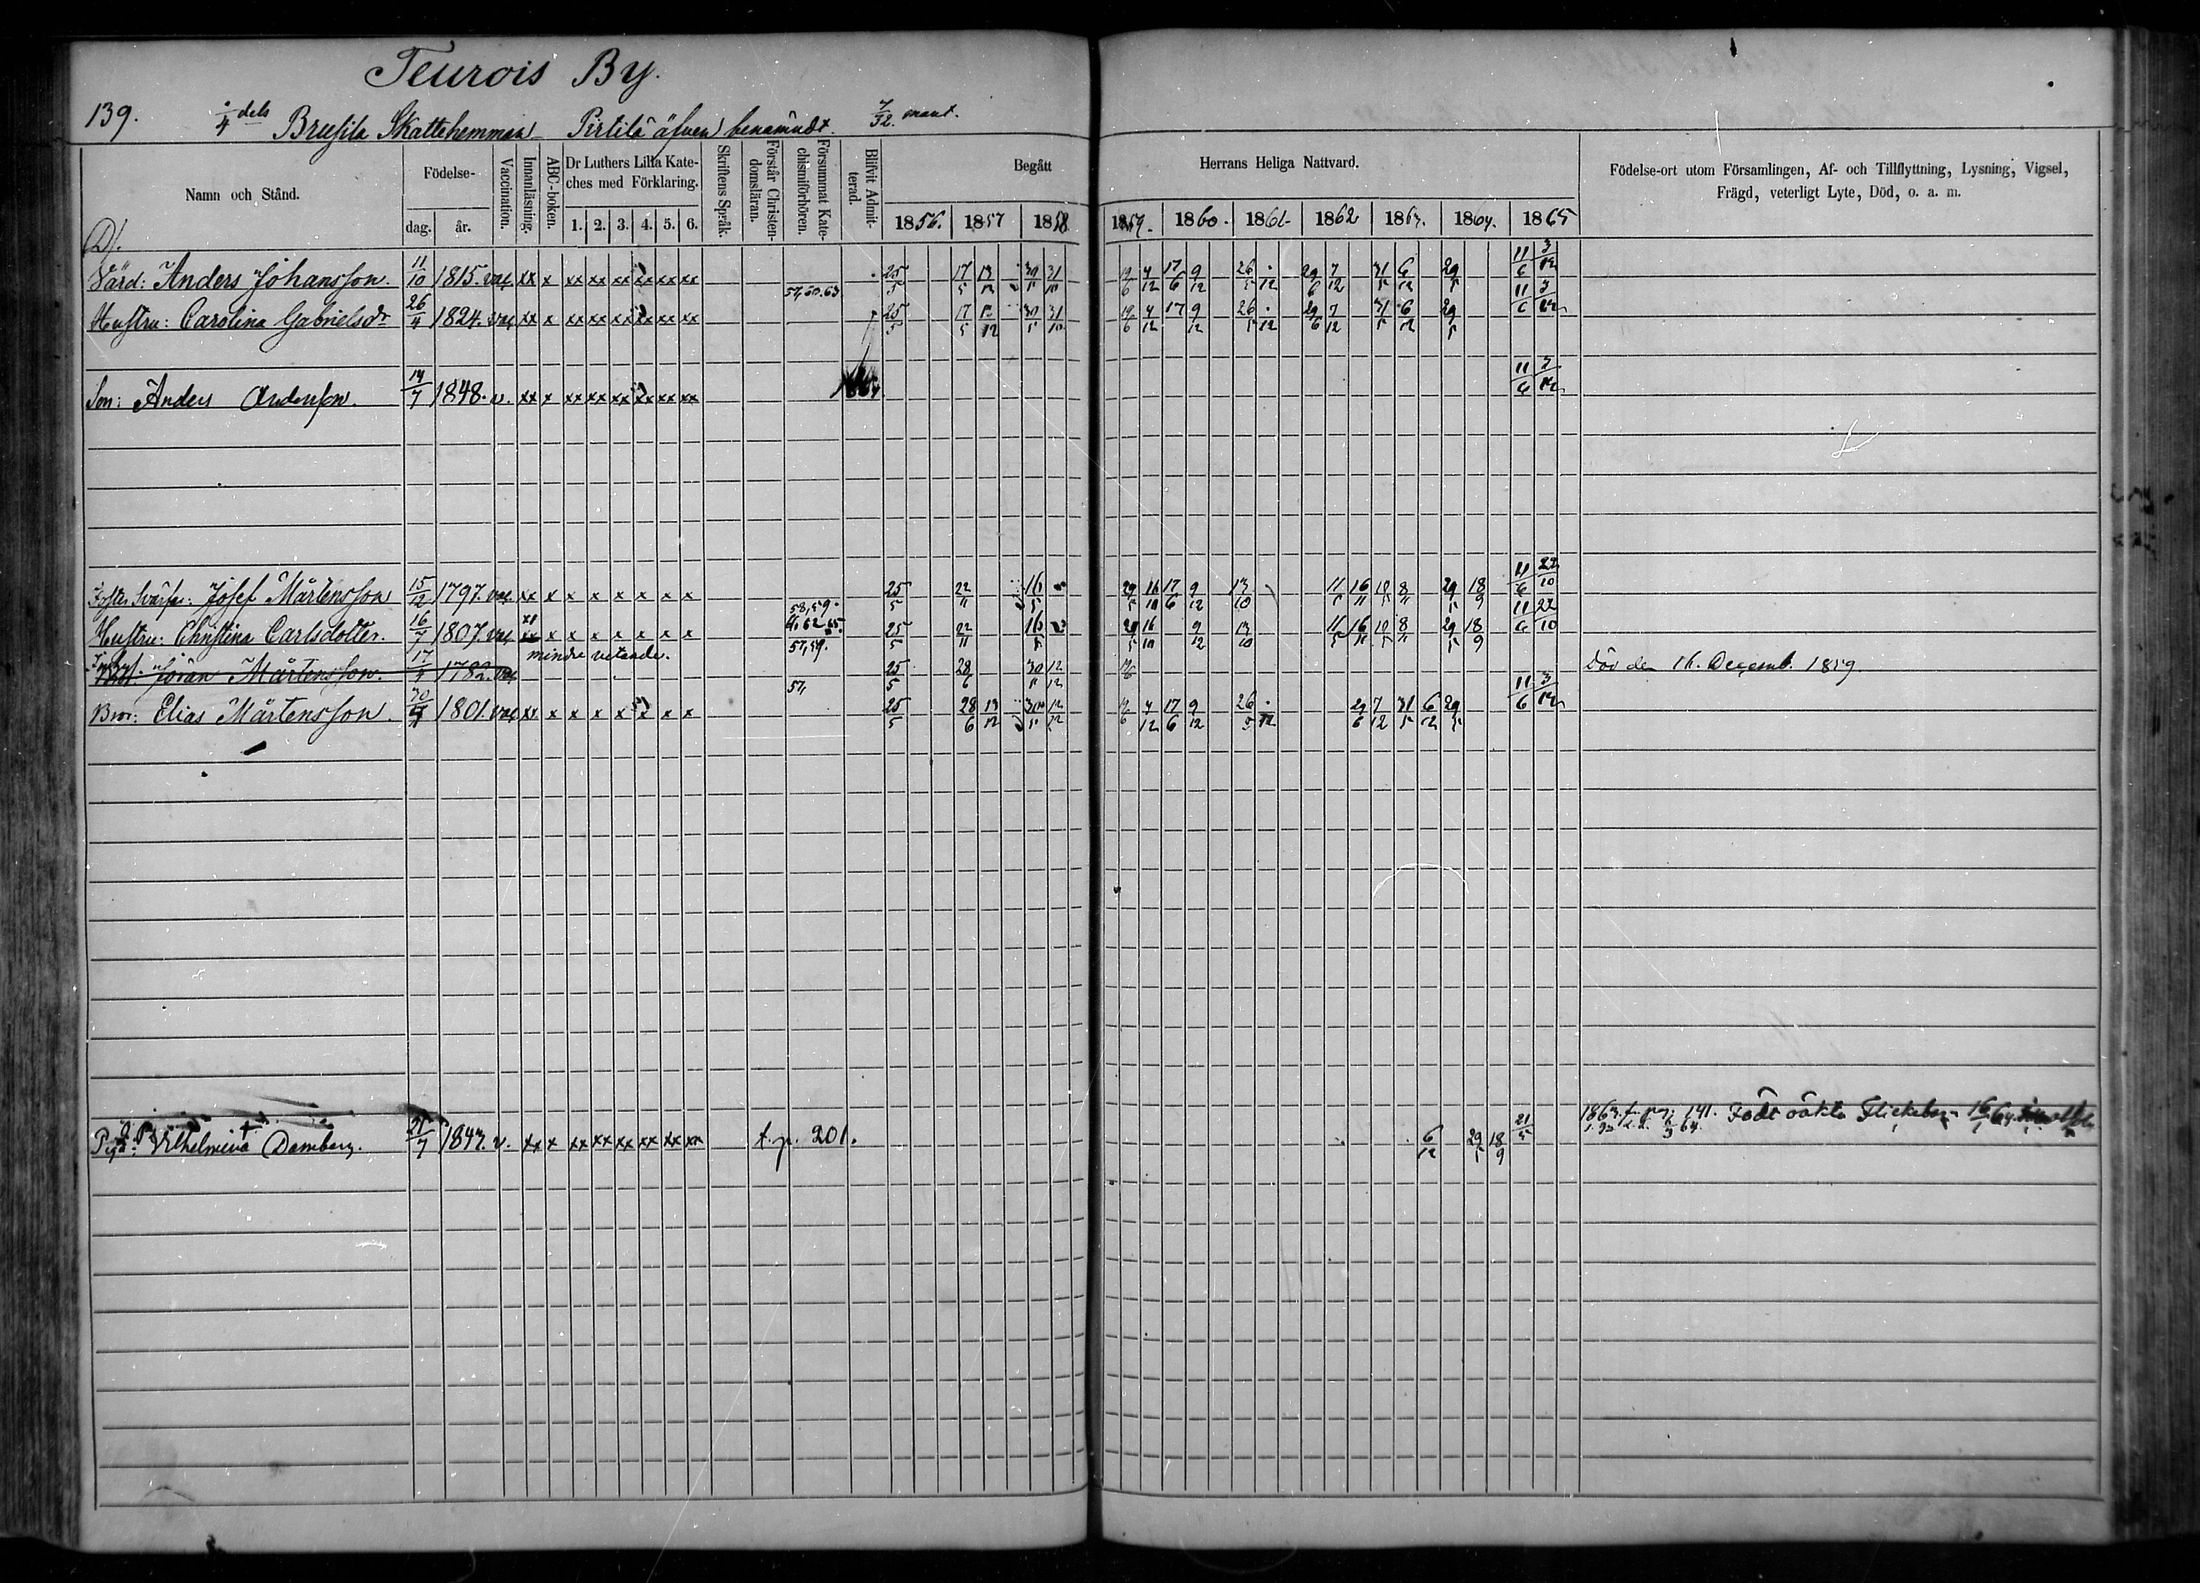 Teurois By.
139. 1/4 dels Brusila Skattehemman Pirtilä äfven benämndt. 7/32 mant.
Namn och Stånd.
Födelse-
dag. år.
Vaccination.
Innanläsning.
ABC-boken.
Dr Luthers Lilla Kate-
ches med Förklaring.
1. 2. 3. 4. 5. 6.
Skriftens Språk.
Förstår Christen-
domsläran.
Försummat Kate-
chismiförhören.
Blifvit Admit-
terad.
Begått Herrans Heliga Nattvard.
1856. 1857 1858 1859. 1860. 1861 1862 1863. 1864. 1865
Födelse-ort utom Församlingen, Af- och Tillflyttning, Lysning, Vigsel,
Frägd, veterligt Lyte, Död, o. a. m.
Värd: Anders Johansson. 11/10 1815. vac xx x xx xx xx xx xx xx 25/5 17/5 13/12 30/5 31/10 19/6 4/12 17/6 9/12 26/5 12 29/6 7/12 31/5 6/12 29/5 11/6 3/12
57, 60. 63
Hustru: Carolina Gabrielsdr 26/4 1824. vac xx x xx xx xx xx xx xx 25/5 17/5 12 30/5 31/10 19/6 4/12 17 9/12 26/5 12 29/6 7/12 31/5 6/12 29/5 11/6 3/12
Son: Anders Andersson. 14/7 1848. v. xx x xx xx xx xx xx xx 11/6 3/12
Josef Mårtensson 15/12 1797. vac xx x x x x x x x 25/5 22/11 16/5 29/5 16/10 17/6 9/12 13/10 11/5 16/11 10/5 8/11 29/5 18/9 11/6 22/10
58, 59.
61 62 65.
Hustru: Christina Carlsdotter. 16/7 1807. vac x x x x x x x 25/5 22/11 16/5 29/5 16/10 9/12 13/10 11/5 16/11 10/5 8/11 29/5 18/9 11/6 22/10
57, 59.
mindre vetande.
Jöran Mårtensson. 17/4 1782. vac 25/5 28/6 30/5 12/12 19/6 Död den 16. Decemb. 1859.
57,
Bror: Elias Mårtensson. 1801. vac xx x x x x x x x 25/5 28/6 13/12 30/5 12/12 19/6 4/12 17/6 9/12 26/5 12 29/6 7/12 31/5 6/12 29/5 11/6 3/12
Pig. Vilhelmina Damberg. 21/7 1843. v. xx x xx xx xx xx xx xx t. p. 201. 6/12 29/5 18/9 21/5 1863. f. pag 141. Född oäkta Flickebn 16/